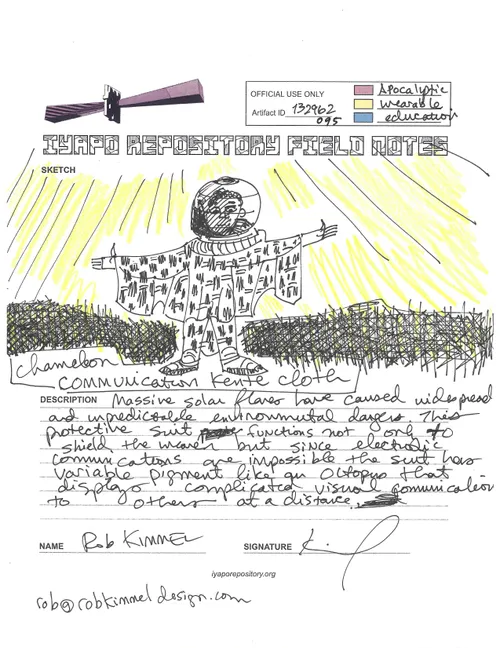 OFFICIAL USE ONLY
Artifact ID 132962
095
Apocalyptic
wearable
education
IYAPO REPOSITORY FIELD NOTES
SKETCH
Chameleon
Communication Kente cloth
DESCRIPTION Massive solar flares have caused widespread
and unpredictable environmental dangers. This
protective suit functions not only to
shield the wearer but since electronic
communications are impossible the suit has
variable pigment like an Octopus that
displays complicated visual communication
to others at a distance.
NAME Rob KIMMEL SIGNATURE
iyaporepository.org
rob@robkimmeldesign.com